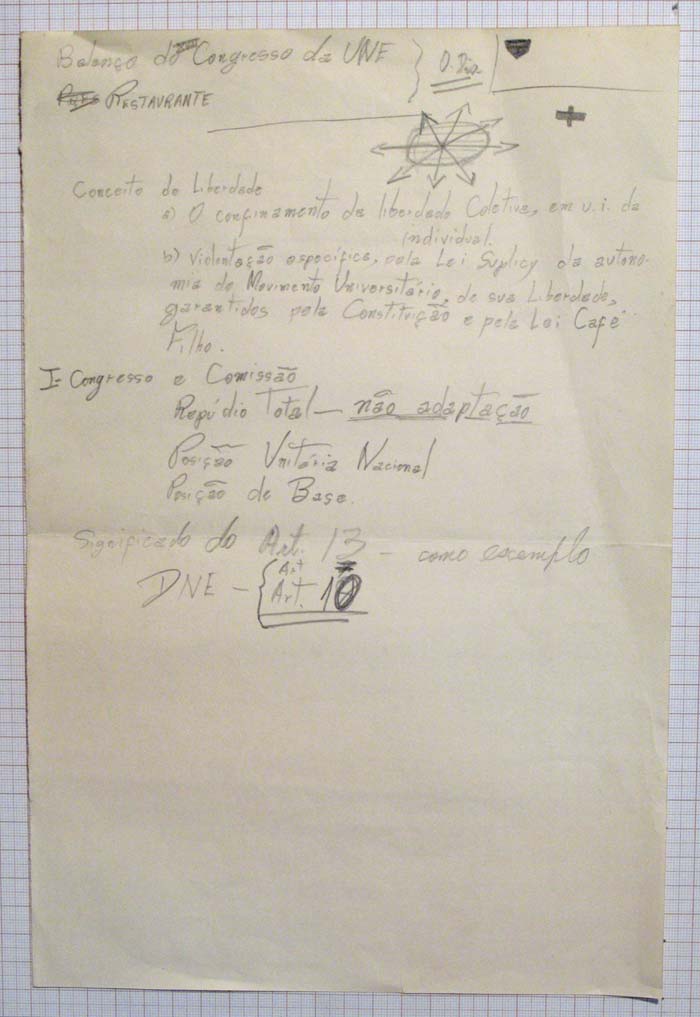 Balanço do Congresso da UNE } O. Dia.
RESTAURANTE
Conceito de Liberdade
a) O confinamento da liberdade Coletiva, em v.i. da
individual.
b) Violentação específica, pela Lei Suplicy da autono-
mia do Movimento Universitário, de sua Liberdade,
garantidos pela Constituição e pela Lei Café
Filho.
I- Congresso e Comissão
Repúdio Total — não adaptação
Posição Unitária Nacional
Posição de Base.
Significado do Art. 13 - como exemplo
DNE - { Art
Art. 10